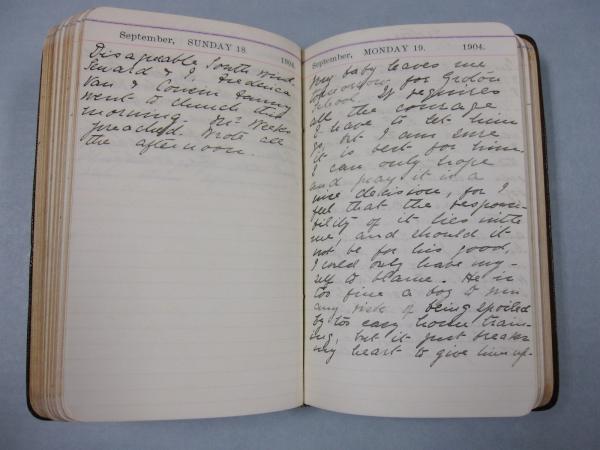 September, SUNDAY 18. 1904.
Disagreeable South wind.
Gerald & I, Frederica
Van & Cousin Fanny
went to church this
morning. Mr Weeks
preached. Wrote all
the afternoon.
September, MONDAY 19. 1904.
My baby leaves me
tomorrow for Groton
School. It requires
all the courage
I have to let him
go, but I am sure
it is best for him.
I can only hope
and pray it is a
wise decision, for I
feel that the responsi-
bility of it lies with
me, and should it
not be for his good,
I could only have my-
self to blame. He is
too fine a boy to run
any risk of being spoiled
by too easy home train-
ing, but it just breaks
my heart to give him up.